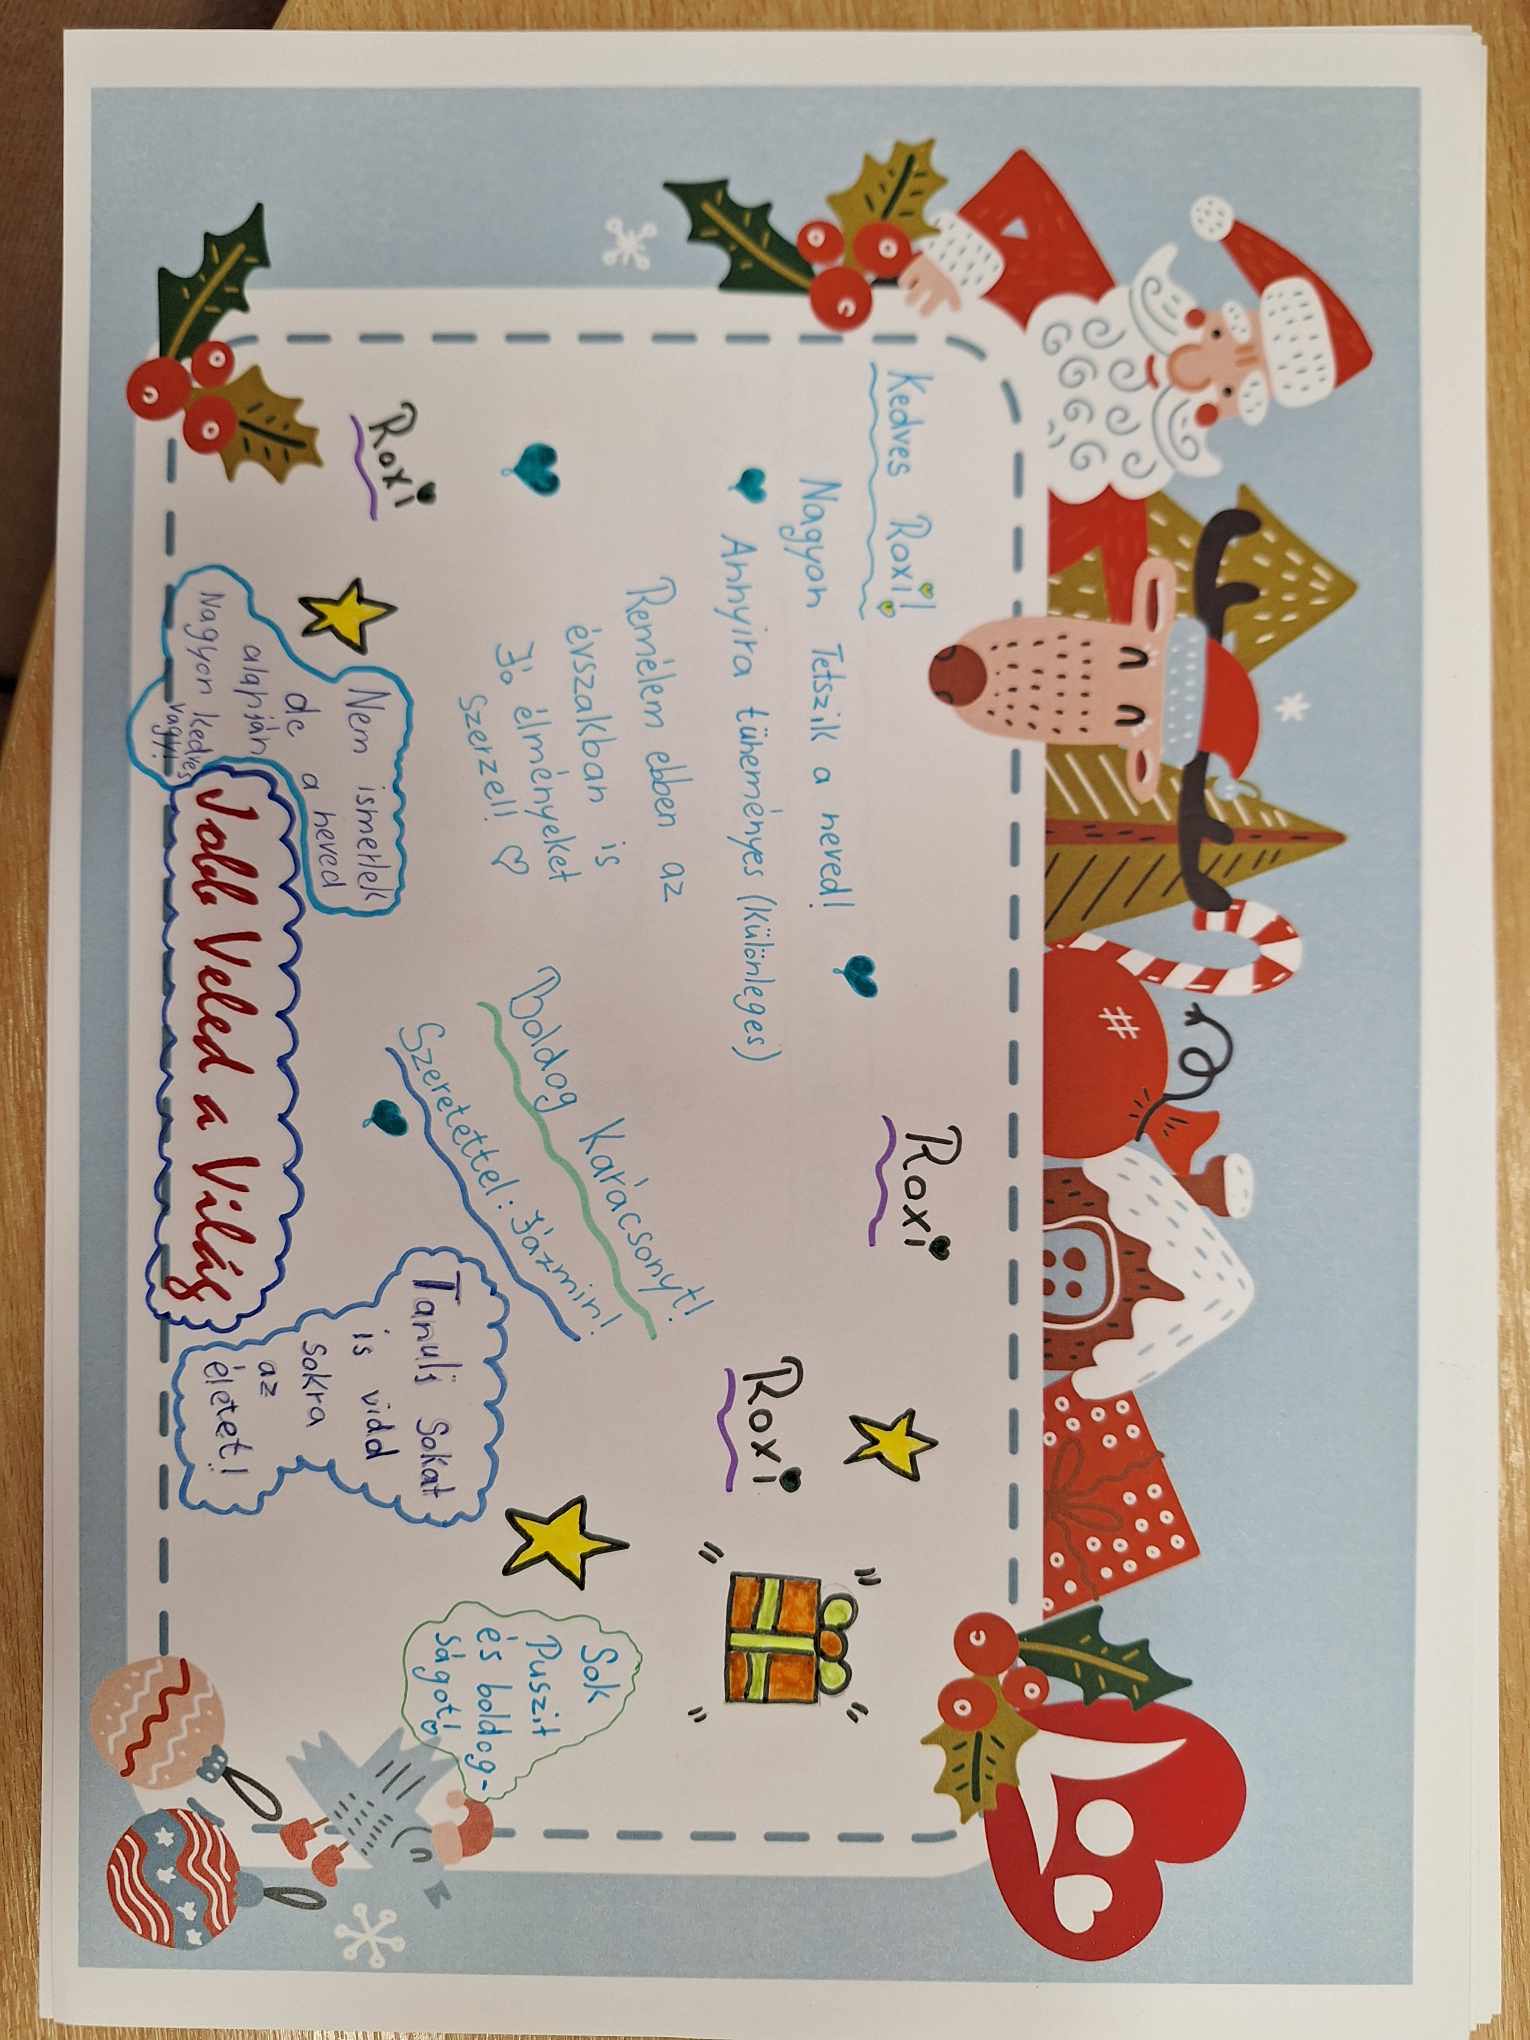 Kedves Roxi!
Nagyon Tetszik a neved!
Annyira tüheményes (különleges)
Remélem ebben az
évszakban is
Jó élményeket
szerzel!
Boldog Karácsonyt!
Szeretettel: Jázmin!
Roxi
Roxi
Roxi
Nem ismerlek
de a neved
alapján
Nagyon kedves
vagy!
Jobb Veled a Világ
Tanulj sokat
is vidd
sokra
az
életet!
Sok
Puszit
és boldog-
ságot!